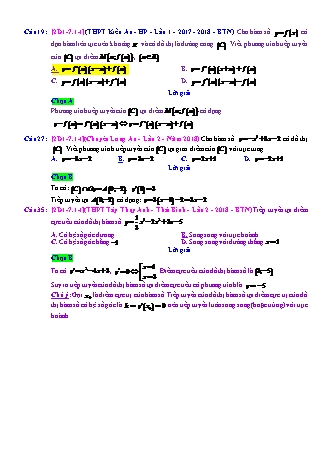 Câu 19: [2D1-7.1-1] (THPT Kiến An - HP - Lần 1 - 2017 - 2018 - BTN) Cho hàm số y = f(x) có
đạo hàm liên tục trên khoảng K và có đồ thị là đường cong (C). Viết phương trình tiếp tuyến
của (C) tại điểm M(a; f(a)), (a∈K)
A. y = f'(a)(x−a)+f(a). B. y = f'(a)(x+a)+f(a).
C. y = f(a)(x−a)+f'(a). D. y = f'(a)(x−a)−f(a).
Lời giải
Chọn A
Phương trình tiếp tuyến của (C) tại điểm M(a; f(a)) có dạng
y − f(a) = f'(a)(x−a) ⇔ y = f'(a)(x−a)+f(a)
Câu 27: [2D1-7.1-1] (Chuyên Long An - Lần 2 - Năm 2018) Cho hàm số y = −x³+3x−2 có đồ thị
(C). Viết phương trình tiếp tuyến của (C) tại giao điểm của (C) với trục tung.
B. y = 3x−2. C. y = 2x+1
Lời giải
Chọn B
Ta có: (C)∩Oy = A(0;−2), y'(0) = 3
Tiếp tuyến tại A(0;−2) có dạng:
Câu 35: [2D1-7.1-1] (THPT Tây Thụy Anh - Thái Bình - Lần 2 - 2018 - BTN) Tiếp tuyến tại điểm
cực tiểu của đồ thị hàm số y = 1/3 x³−2x²+3x−5
A. Có hệ số góc dương. B. Song song với trục hoành.
C. Có hệ số góc bằng −1. D. Song song với đường thẳng x = 1.
Lời giải
Chọn B
Ta có y' = x²−4x+3, y' = 0 ⇔ [x = 1 x = 3. Điểm cực tiểu của đồ thị hàm số là (3;−5)
Suy ra tiếp tuyến của đồ thị hàm số tại điểm cực tiểu có phương trình là y = −5.
Chú ý: Gọi x₀ là điểm cực trị của hàm số. Tiếp tuyến của đồ thị hàm số tại điểm cực trị của đồ
thị hàm số có hệ số góc là k = y'(x₀) = 0 nên tiếp tuyến luôn song song (hoặc trùng) với trục
hoành